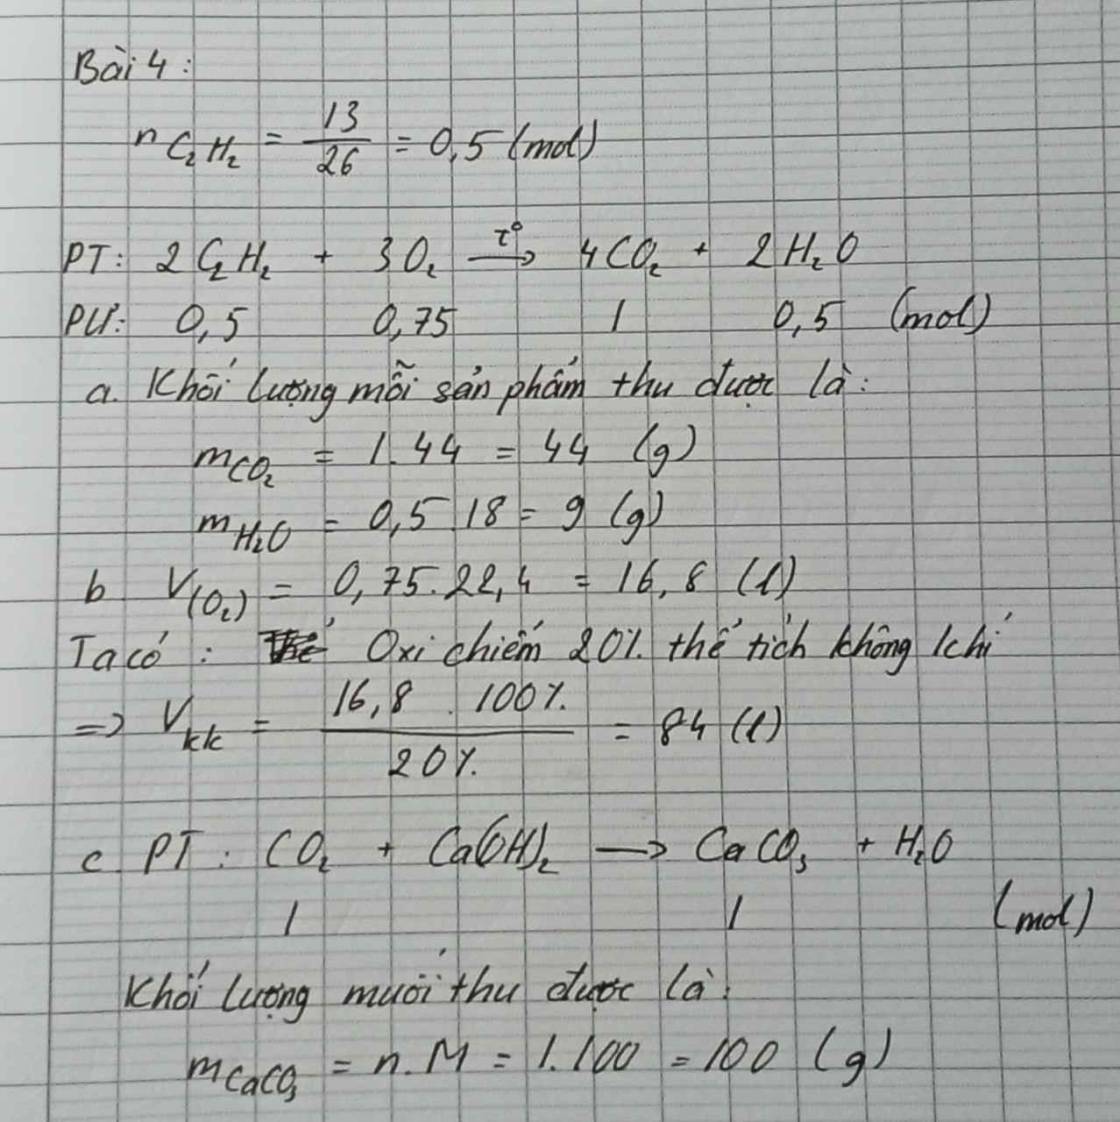 Bài 4 :
n C₂H₂ = 13/26 = 0,5 (mol)
PT: 2C₂H₂ + 3O₂ —t°→ 4CO₂ + 2H₂O
PƯ: 0,5 0,75 1 0,5 (mol)
a. Khối lượng mỗi sản phẩm thu được là:
mCO₂ = 1.44 = 44 (g)
mH₂O = 0,5.18 = 9 (g)
b V(O₂) = 0,75.22,4 = 16,8 (l)
Ta có : Oxi chiếm 20% thể tích không khí
=> Vkk = 16,8 . 100% / 20% = 84 (l)
c. PT : CO₂ + Ca(OH)₂ → CaCO₃ + H₂O
1 1 (mol)
Khối lượng muối thu được là:
mCaCO₃ = n.M = 1.100 = 100 (g)